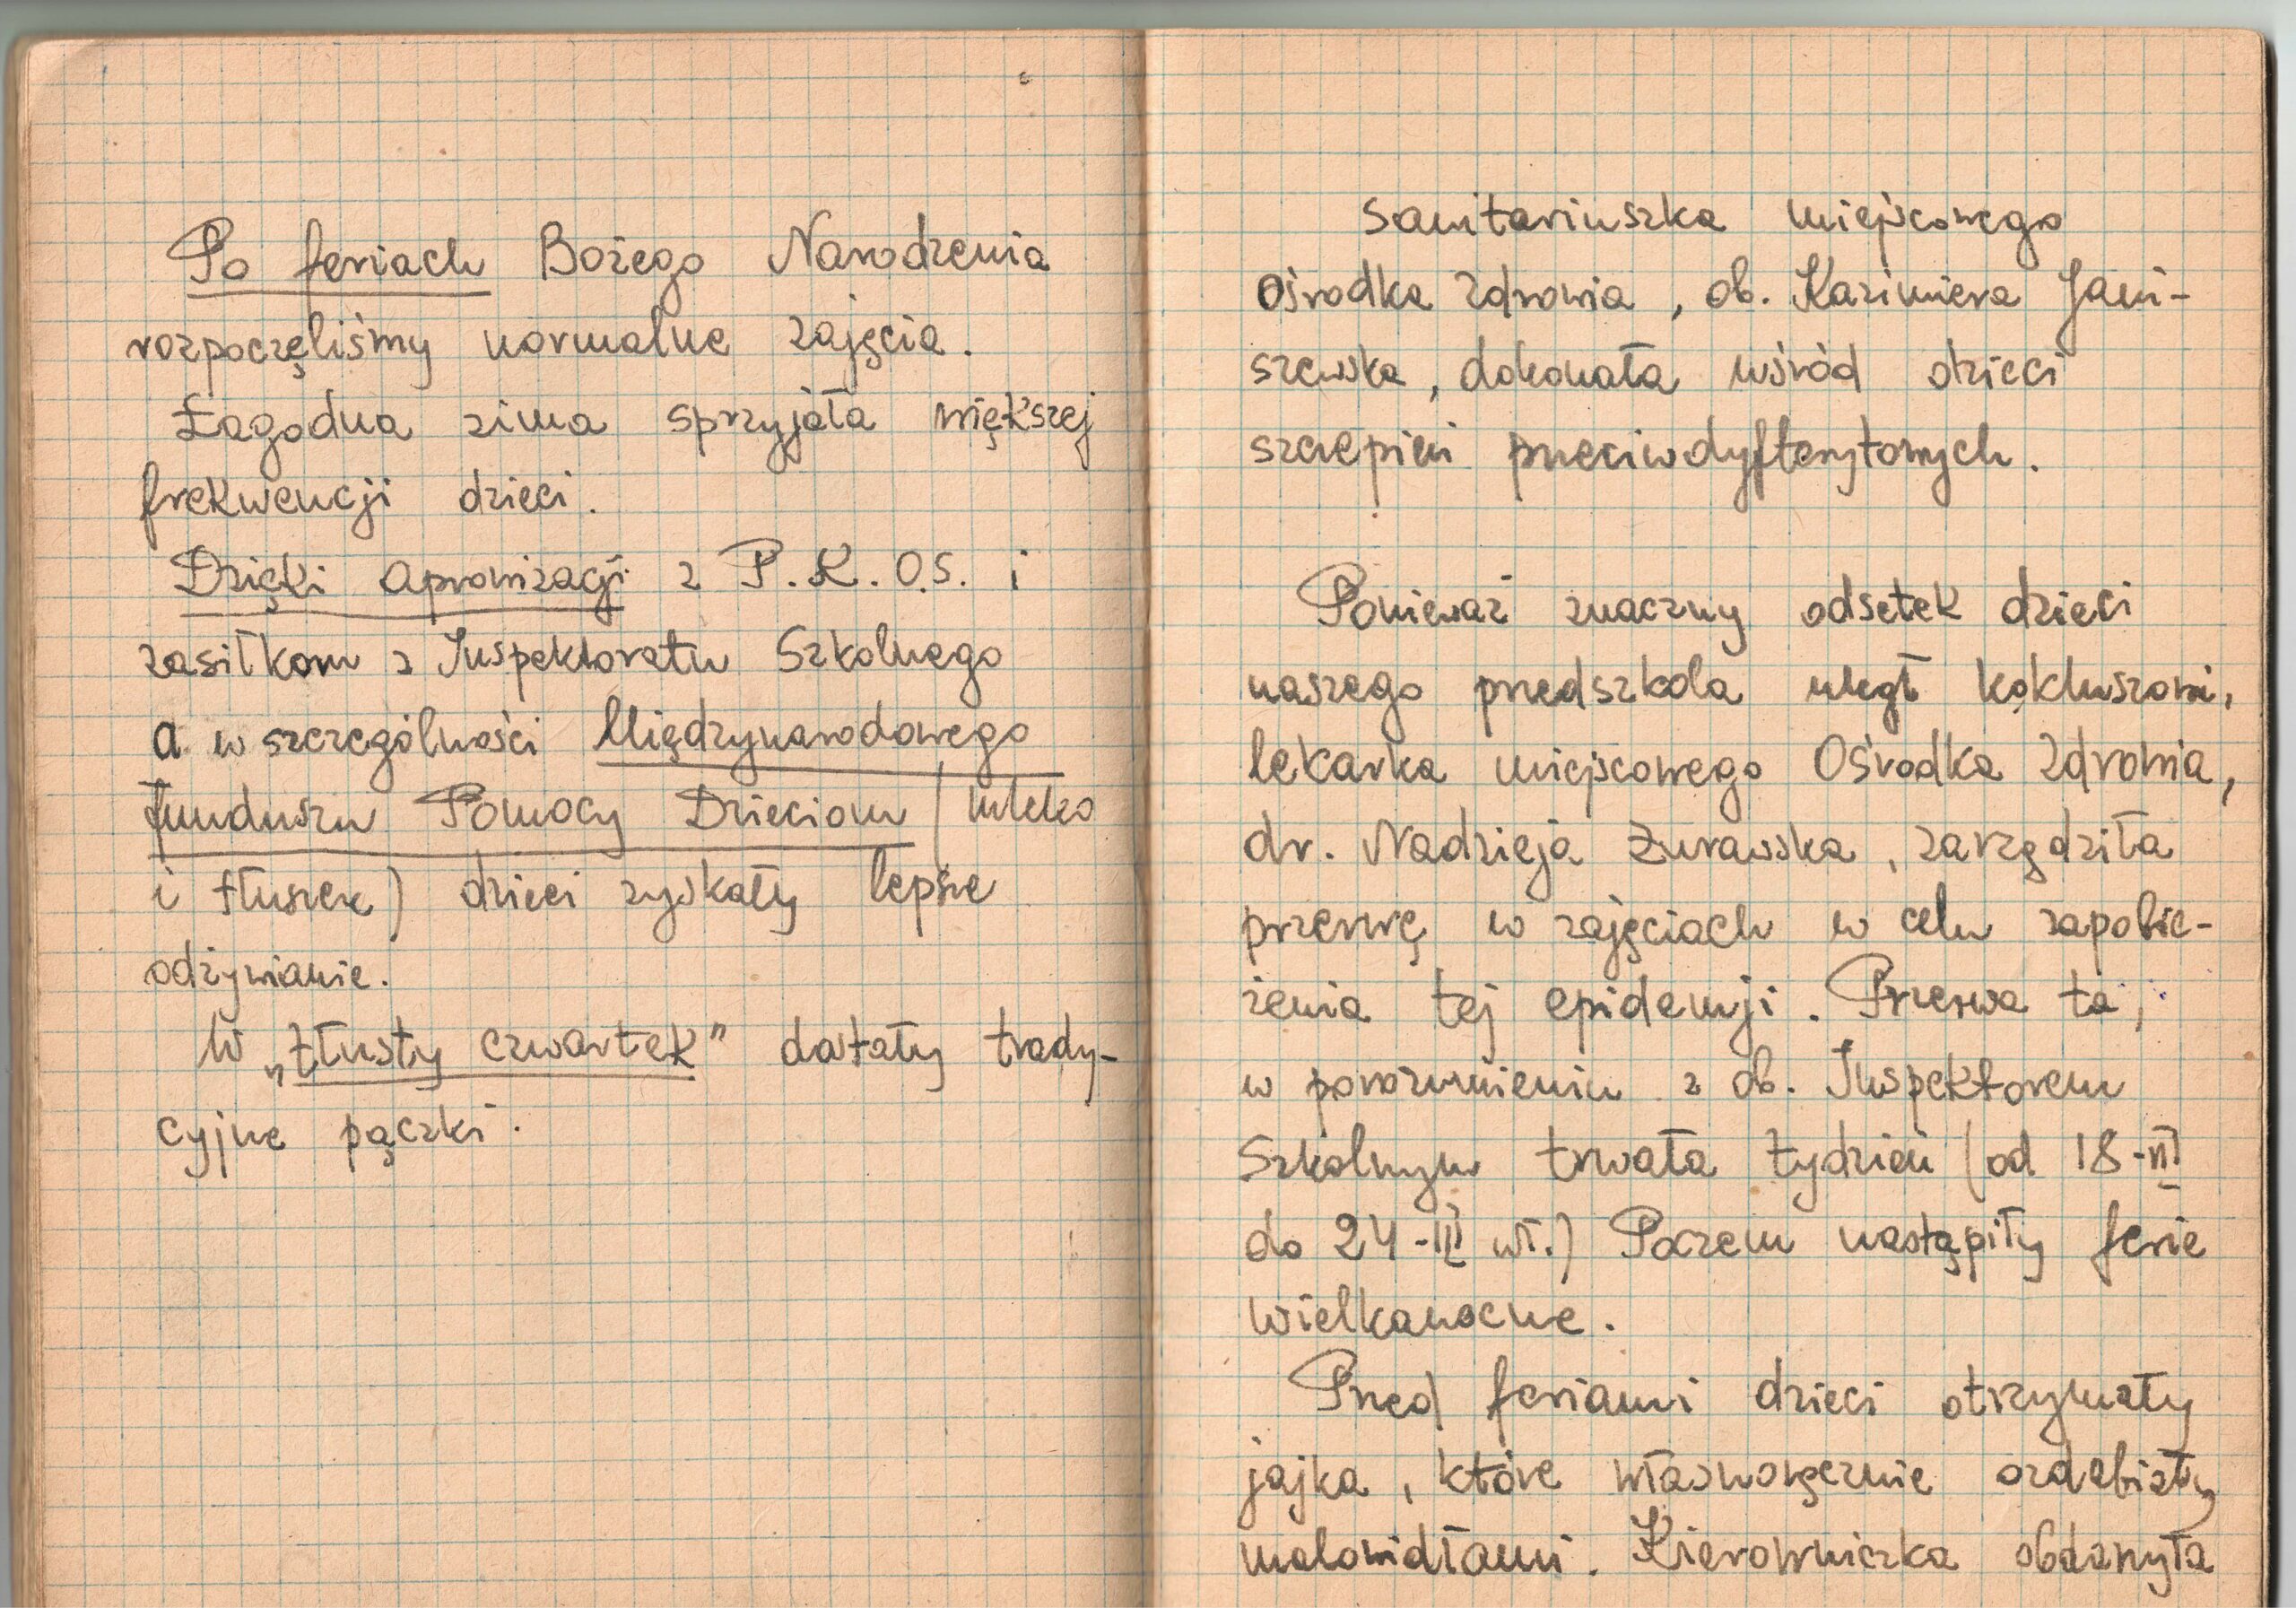 Po feriach Bożego Narodzenia
rozpoczęliśmy normalne zajęcia.
Łagodna zima sprzyjała większej
frekwencji dzieci.
Dzięki aprowizacji z P.K.O.S. i
zasiłkom z Inspektoratu Szkolnego
a w szczególności Międzynarodowego
funduszu Pomocy Dzieciom (mleko
i tłuszcze) dzieci zyskały lepsze
odżywianie.
W „tłusty czwartek” dostały trady-
cyjne pączki.
Sanitariuszka miejscowego
Ośrodka Zdrowia, ob. Kazimiera Jani-
szewska, dokonała wśród dzieci
szczepień przeciwdyfterytowych.
Ponieważ znaczny odsetek dzieci
naszego przedszkola uległ kokluszowi,
lekarka miejscowego Ośrodka Zdrowia,
dr. Nadzieja Żurawska, zarządziła
przerwę w zajęciach w celu zapobie-
żenia tej epidemji. Przerwa ta,
w porozumieniu z ob. Inspektorem
Szkolnym trwała tydzień (od 18-III
do 24-III wł.) Poczem nastąpiły ferie
wielkanocne.
Przed feriami dzieci otrzymały
jajka, które własnoręcznie ozdabiały
malowidłami. Kierowniczka obdarzyła